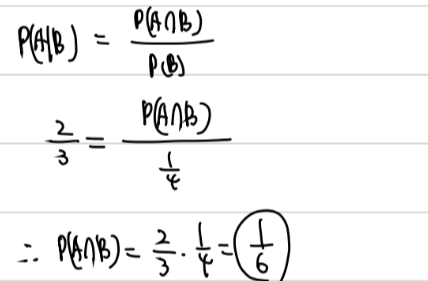 P(A|B) = P(A∩B) / P(B)
2/3 = P(A∩B) / 1/4
∴ P(A∩B) = 2/3 · 1/4 = 1/6